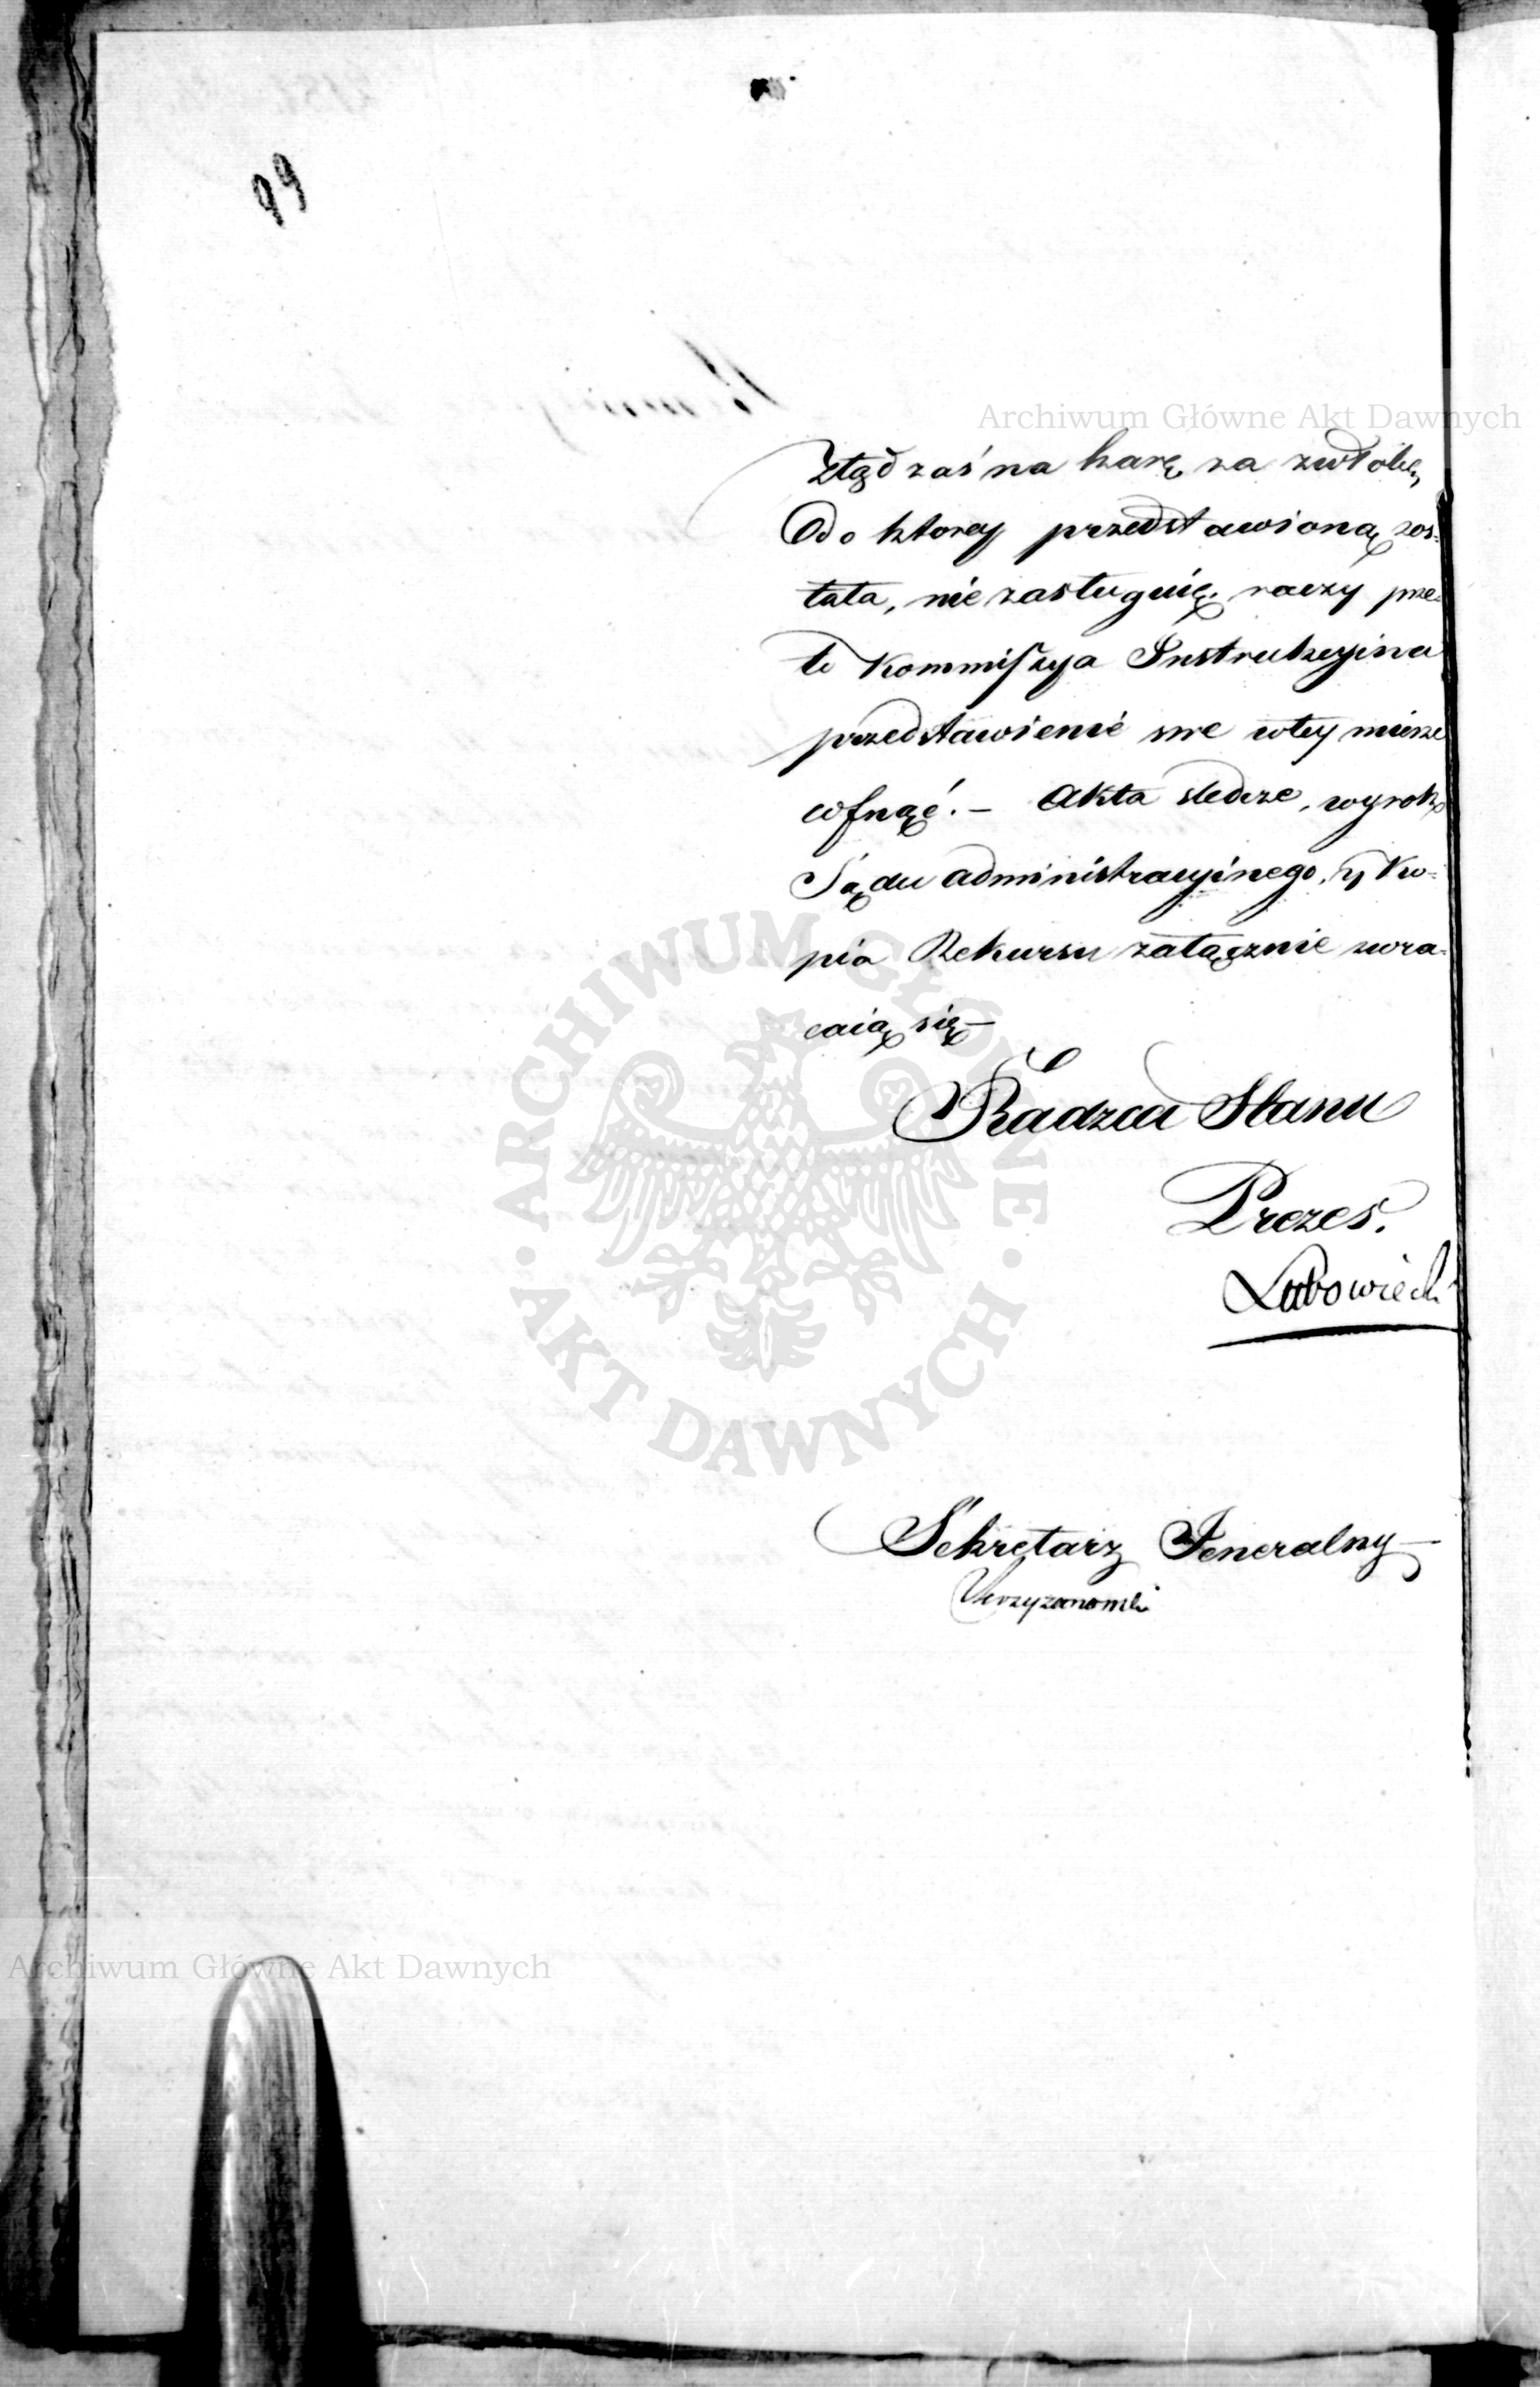 99
Archiwum Główne Akt Dawnych
Ztąd zaś na karę za zwłokę,
do ktorey przedstawioną zos-
tała, nie zasługuię. raczy prze-
to Kommissya Instrukcyina
przedstawienie swe wtey mierze
cofnąć. – Akta śledcze, wyrok
Sądu administracyinego, y Ko-
pia Rekursu załącznie zwra-
caią się –
Radzca Stanu
Prezes.
Lubowiecki
ARCHIWUM GŁÓWNE
AKT DAWNYCH
Sekretarz Jeneralny
Krzyżanowski
Archiwum Główne Akt Dawnych